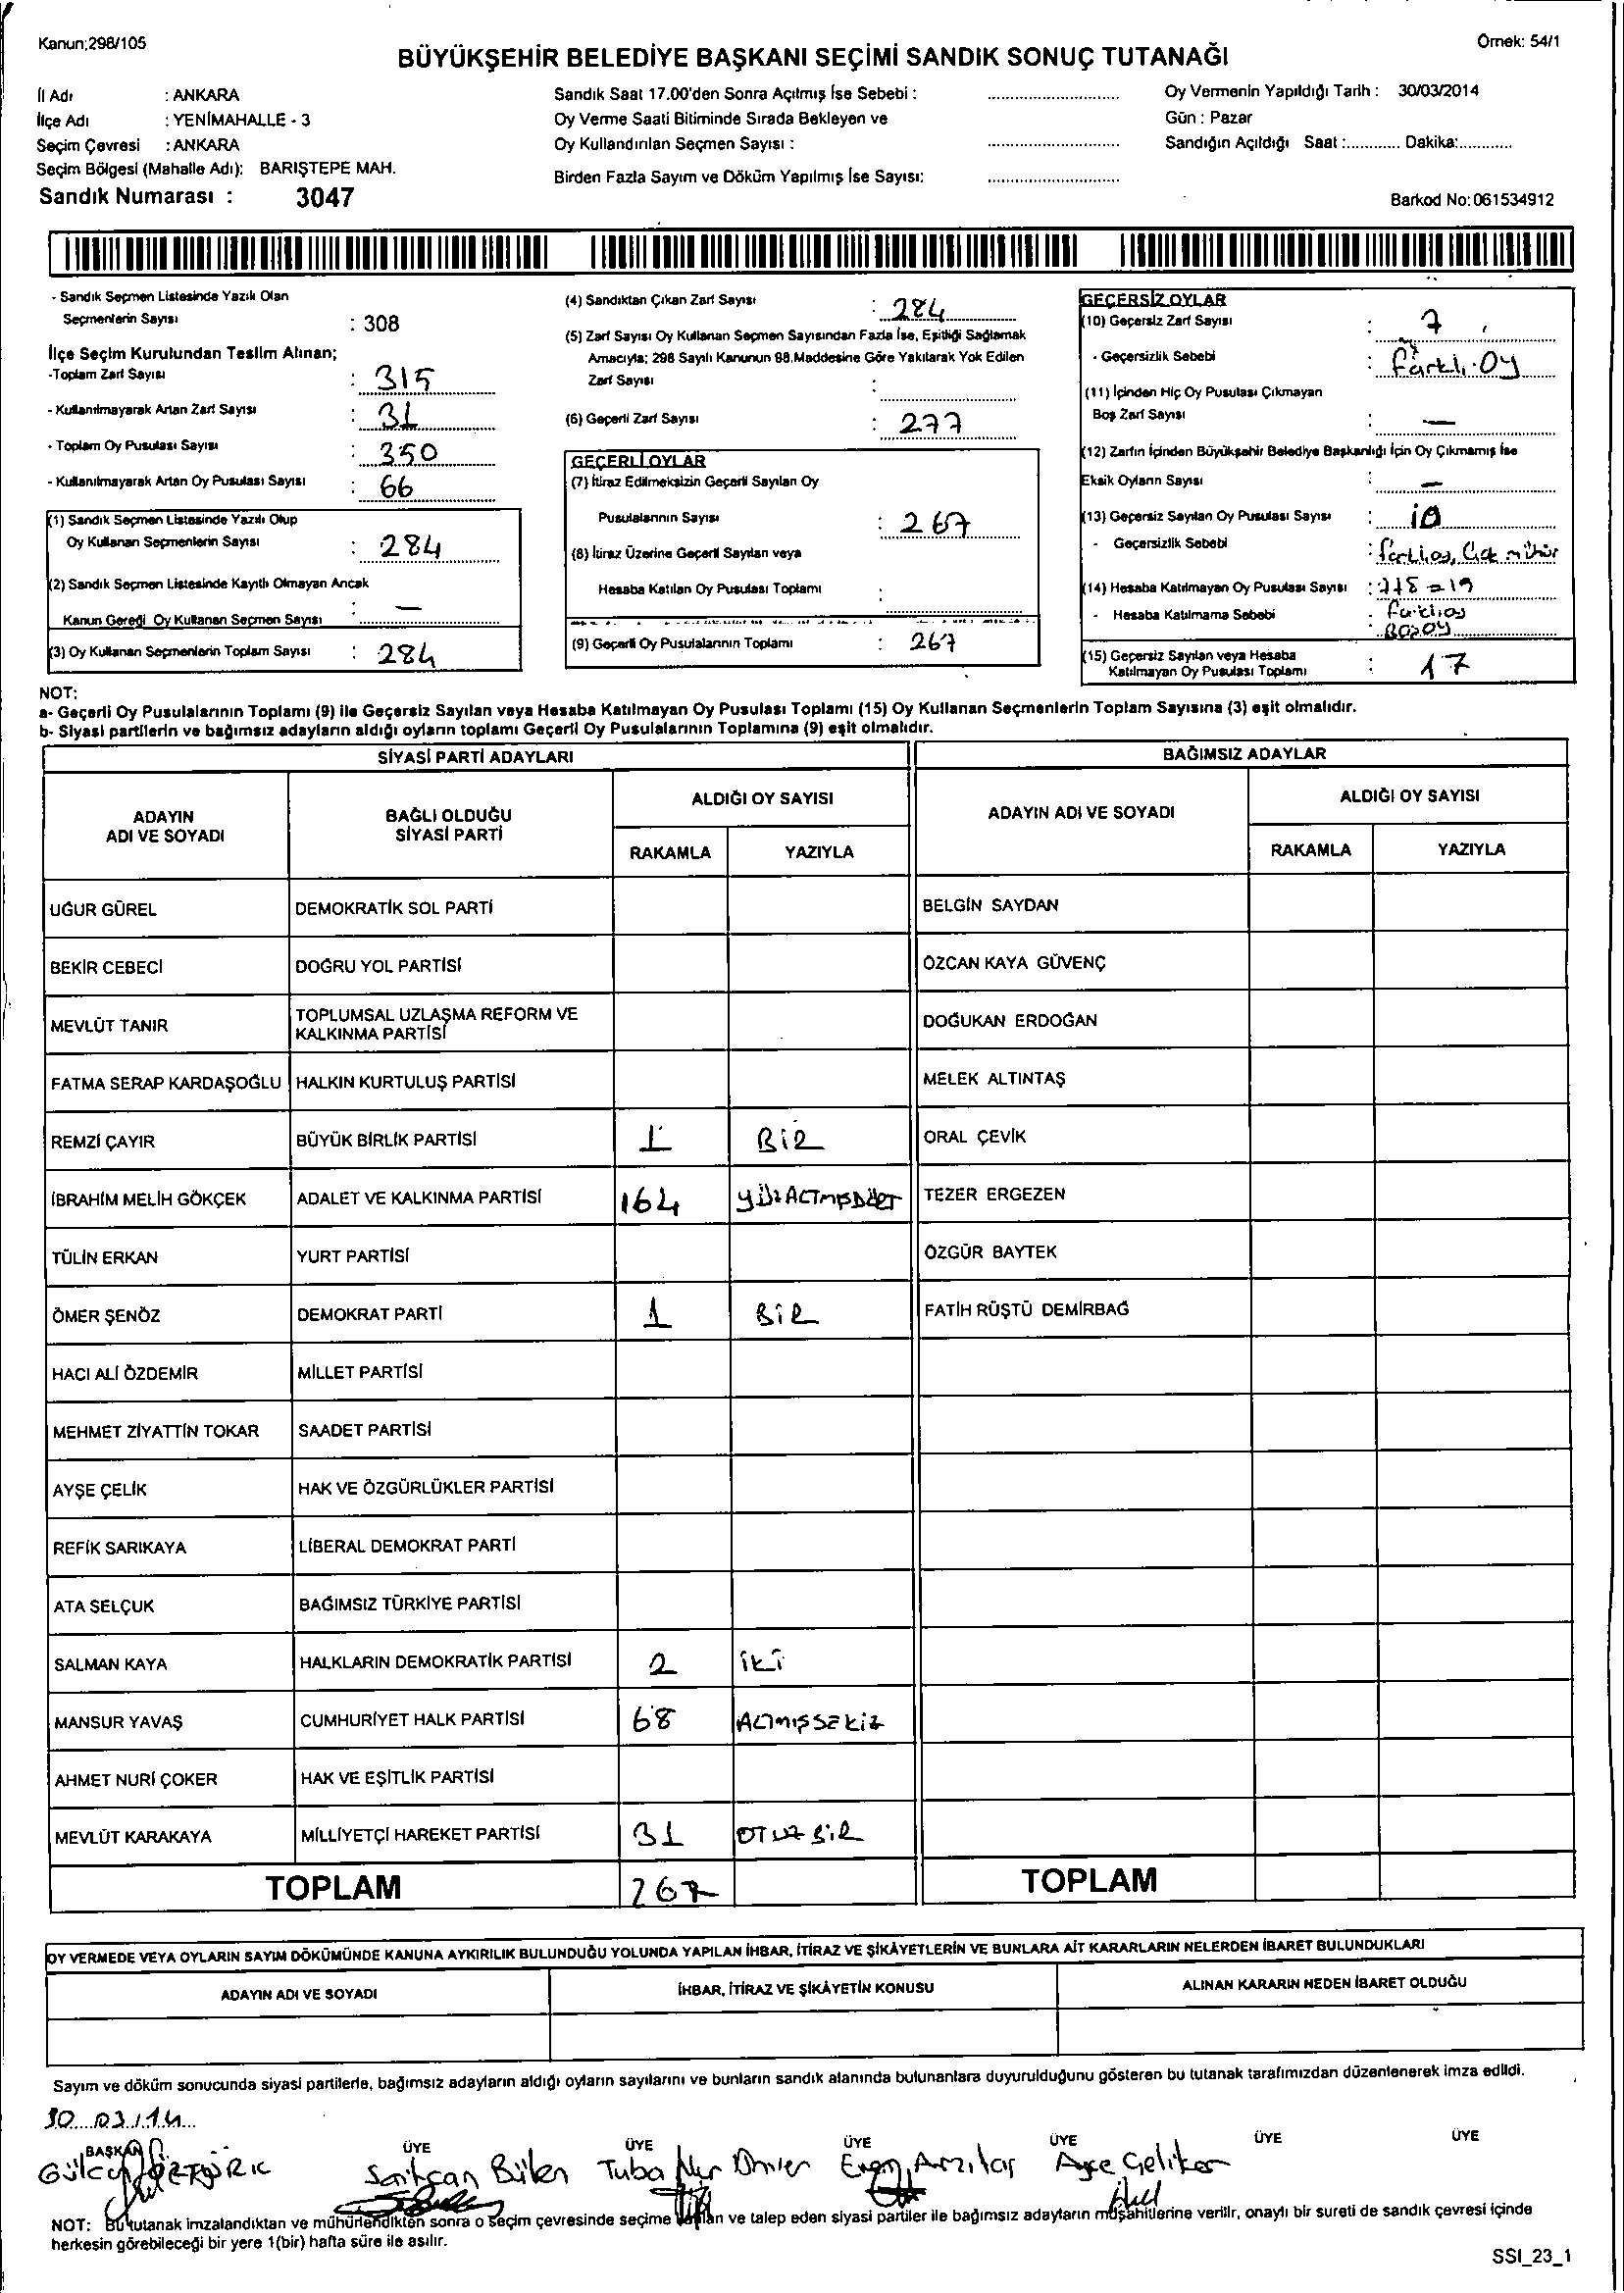 Kanun;298/105
Örnek: 54/1
BÜYÜKŞEHİR BELEDİYE BAŞKANI SEÇİMİ SANDIK SONUÇ TUTANAĞI
İl Adı : ANKARA
İlçe Adı : YENİMAHALLE - 3
Seçim Çevresi : ANKARA
Seçim Bölgesi (Mahalle Adı): BARIŞTEPE MAH.
Sandık Numarası : 3047
Sandık Saat 17.00'den Sonra Açılmış İse Sebebi :
Oy Verme Saati Bitiminde Sırada Bekleyen ve
Oy Kullandırılan Seçmen Sayısı :
Birden Fazla Sayım ve Döküm Yapılmış İse Sayısı:
Oy Vermenin Yapıldığı Tarih : 30/03/2014
Gün : Pazar
Sandığın Açıldığı Saat :............ Dakika:............
Barkod No:061534912
- Sandık Seçmen Listesinde Yazılı Olan
Seçmenlerin Sayısı : 308
İlçe Seçim Kurulundan Teslim Alınan;
-Toplam Zarf Sayısı : 315
- Kullanılmayarak Artan Zarf Sayısı : 31
- Toplam Oy Pusulası Sayısı : 350
- Kullanılmayarak Artan Oy Pusulası Sayısı : 66
(1) Sandık Seçmen Listesinde Yazılı Olup
Oy Kullanan Seçmenlerin Sayısı : 284
(2) Sandık Seçmen Listesinde Kayıtlı Olmayan Ancak
Kanun Gereği Oy Kullanan Seçmen Sayısı : —
(3) Oy Kullanan Seçmenlerin Toplam Sayısı : 284
(4) Sandıktan Çıkan Zarf Sayısı : 284
(5) Zarf Sayısı Oy Kullanan Seçmen Sayısından Fazla İse, Eşitliği Sağlamak
Amacıyla; 298 Sayılı Kanunun 98.Maddesine Göre Yakılarak Yok Edilen
Zarf Sayısı :
(6) Geçerli Zarf Sayısı : 277
GEÇERLİ OYLAR
(7) İtiraz Edilmeksizin Geçerli Sayılan Oy
Pusulalarının Sayısı : 267
(8) İtiraz Üzerine Geçerli Sayılan veya
Hesaba Katılan Oy Pusulası Toplamı :
(9) Geçerli Oy Pusulalarının Toplamı : 267
GEÇERSİZ OYLAR
(10) Geçersiz Zarf Sayısı : 7
- Geçersizlik Sebebi : farklı oy
(11) İçinden Hiç Oy Pusulası Çıkmayan
Boş Zarf Sayısı : —
(12) Zarfın İçinden Büyükşehir Belediye Başkanlığı İçin Oy Çıkmamış İse
Eksik Oyların Sayısı : —
(13) Geçersiz Sayılan Oy Pusulası Sayısı : 10
- Geçersizlik Sebebi : farklıoy, mühür
(14) Hesaba Katılmayan Oy Pusulası Sayısı :
- Hesaba Katılmama Sebebi : farklıoy
: Bozoy
(15) Geçersiz Sayılan veya Hesaba
Katılmayan Oy Pusulası Toplamı : 17
NOT:
a- Geçerli Oy Pusulalarının Toplamı (9) ile Geçersiz Sayılan veya Hesaba Katılmayan Oy Pusulası Toplamı (15) Oy Kullanan Seçmenlerin Toplam Sayısına (3) eşit olmalıdır.
b- Siyasi partilerin ve bağımsız adayların aldığı oyların toplamı Geçerli Oy Pusulalarının Toplamına (9) eşit olmalıdır.
SİYASİ PARTİ ADAYLARI BAĞIMSIZ ADAYLAR
ADAYIN ADI VE SOYADI BAĞLI OLDUĞU SİYASİ PARTİ ALDIĞI OY SAYISI ADAYIN ADI VE SOYADI ALDIĞI OY SAYISI
RAKAMLA YAZIYLA RAKAMLA YAZIYLA
UĞUR GÜREL DEMOKRATİK SOL PARTİ BELGİN SAYDAN
BEKİR CEBECİ DOĞRU YOL PARTİSİ ÖZCAN KAYA GÜVENÇ
MEVLÜT TANIR TOPLUMSAL UZLAŞMA REFORM VE KALKINMA PARTİSİ DOĞUKAN ERDOĞAN
FATMA SERAP KARDAŞOĞLU HALKIN KURTULUŞ PARTİSİ MELEK ALTINTAŞ
REMZİ ÇAYIR BÜYÜK BİRLİK PARTİSİ 1 BİR ORAL ÇEVİK
İBRAHİM MELİH GÖKÇEK ADALET VE KALKINMA PARTİSİ 164 YÜZALTMIŞDÖRT TEZER ERGEZEN
TÜLİN ERKAN YURT PARTİSİ ÖZGÜR BAYTEK
ÖMER ŞENÖZ DEMOKRAT PARTİ 1 BİR FATİH RÜŞTÜ DEMİRBAĞ
HACI ALİ ÖZDEMİR MİLLET PARTİSİ
MEHMET ZİYATTİN TOKAR SAADET PARTİSİ
AYŞE ÇELİK HAK VE ÖZGÜRLÜKLER PARTİSİ
REFİK SARIKAYA LİBERAL DEMOKRAT PARTİ
ATA SELÇUK BAĞIMSIZ TÜRKİYE PARTİSİ
SALMAN KAYA HALKLARIN DEMOKRATİK PARTİSİ 2 İKİ
MANSUR YAVAŞ CUMHURİYET HALK PARTİSİ 68 ALTMIŞSEKİZ
AHMET NURİ ÇOKER HAK VE EŞİTLİK PARTİSİ
MEVLÜT KARAKAYA MİLLİYETÇİ HAREKET PARTİSİ 31 OTUZ BİR
TOPLAM 267 TOPLAM
OY VERMEDE VEYA OYLARIN SAYIM DÖKÜMÜNDE KANUNA AYKIRILIK BULUNDUĞU YOLUNDA YAPILAN İHBAR, İTİRAZ VE ŞİKÂYETLERİN VE BUNLARA AİT KARARLARIN NELERDEN İBARET BULUNDUKLARI
ADAYIN ADI VE SOYADI İHBAR, İTİRAZ VE ŞİKÂYETİN KONUSU ALINAN KARARIN NEDEN İBARET OLDUĞU
Sayım ve döküm sonucunda siyasi partilerle, bağımsız adayların aldığı oyların sayılarını ve bunların sandık alanında bulunanlara duyurulduğunu gösteren bu tutanak tarafımızdan düzenlenerek imza edildi.
30.03.14
BAŞKAN ÜYE ÜYE ÜYE ÜYE ÜYE ÜYE
ÖZTÜRK Saitcan Tuba Nur Eren Ayşe Çeliker
NOT: Bu tutanak imzalandıktan ve mühürlendikten sonra o seçim çevresinde seçime katılan ve talep eden siyasi partiler ile bağımsız adayların müşahitlerine verilir, onaylı bir sureti de sandık çevresi içinde
herkesin görebileceği bir yere 1(bir) hafta süre ile asılır.
SSI_23_1